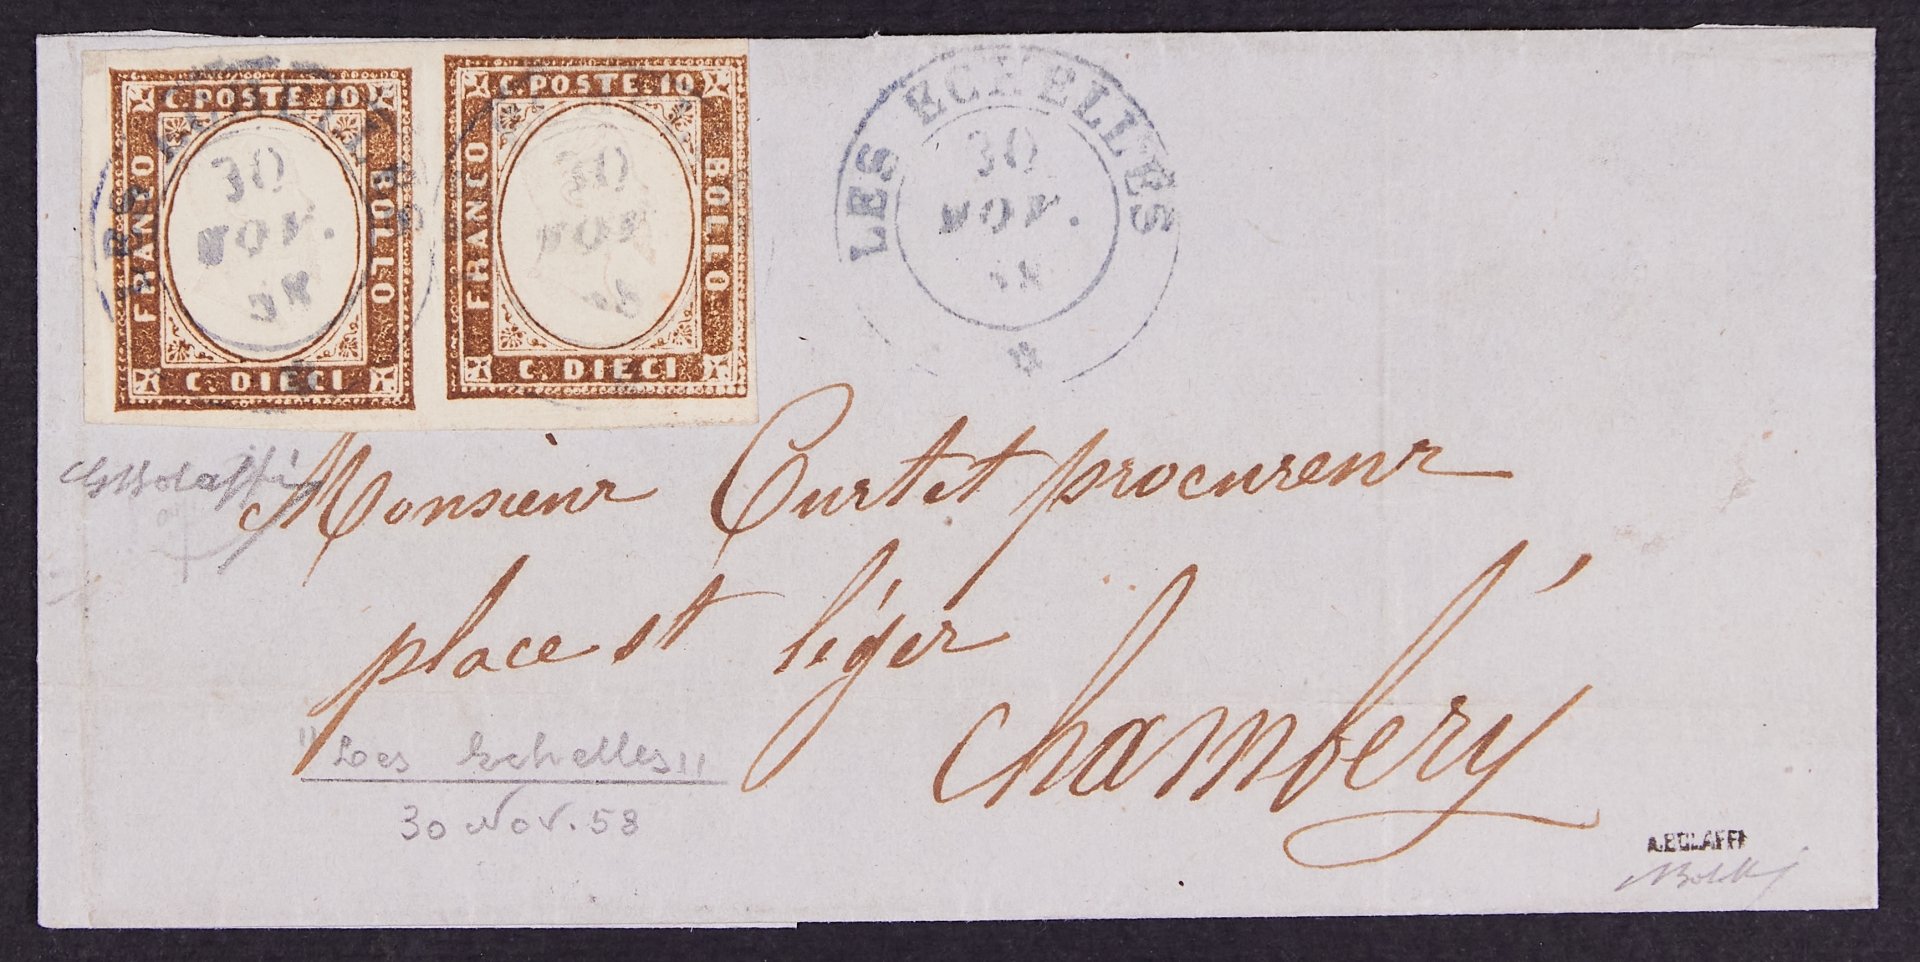 C. POSTE 10
FRANCO
BOLLO
C. DIECI
C. POSTE 10
FRANCO
BOLLO
C. DIECI
LES ECHELLES
30
NOV.
58
LES ECHELLES
30
NOV.
58
30
NOV
58
Monsieur Curtet procureur
place st léger
Chambéry
"Les Echelles"
30 Nov. 58
A. BOLAFFI